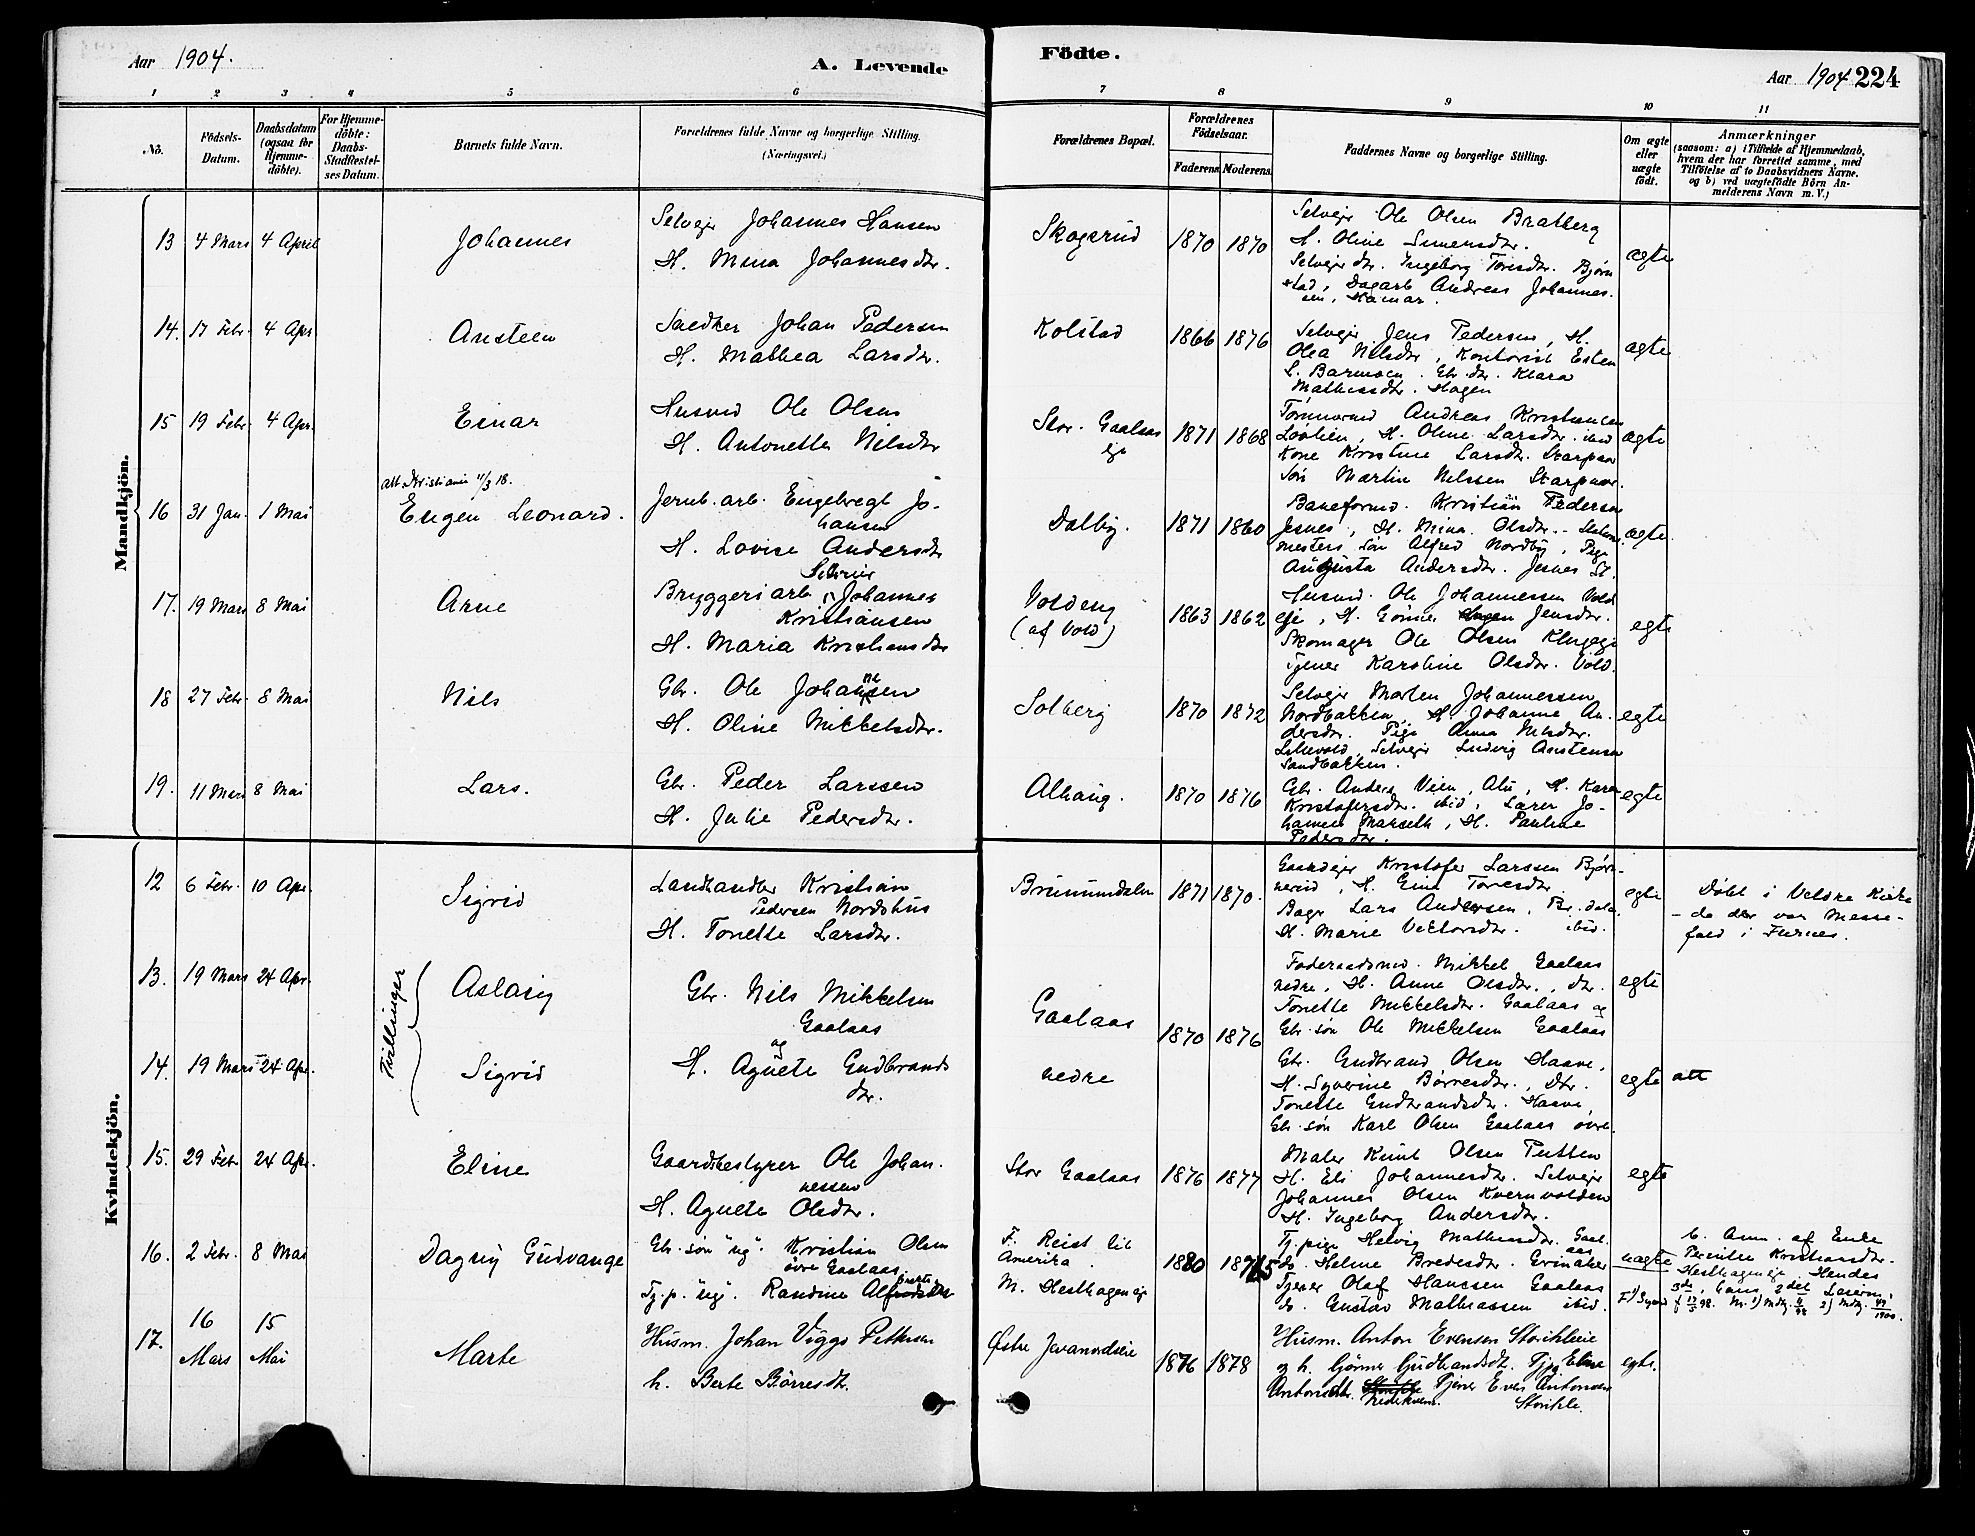 Aar 1904.
A. Levende
Födte.
Aar 1904 224
1 2 3 4 5 6 7 8 9 10 11
No.
Födsels-Datum.
Daabsdatum (ogsaa for Hjemme-döbte).
For Hjemme-döbte: Daabs-Stadfæstel-ses Datum.
Barnets fulde Navn.
Forældrenes fulde Navne og borgerlige Stilling. (Næringsvei.)
Forældrenes Bopæl.
Forældrenes Födselsaar.
Faderens. Moderens.
Faddernes Navne og borgerlige Stilling.
Om ægte eller uægte födt.
Anmærkninger
(saasom: a) i Tilfælde af Hjemmedaab, hvem der har forrettet samme, med Tilföielse af to Daabsvidners Navne. og b) ved uægtefödte Börn An-melderens Navn m. V.)
Mandkjön.
13 4 Mars 4 April Johannes
Selveier Johannes Hansen
H. Mina Johannesdtr.
Skogerud 1870 1870
Selveier Ole Olsen Bratberg
H. Oline Simensdtr.
Selveier dtr. Ingeborg Toresdtr. Bjørn
stad, Dagarb Andreas Johannes.
sen, Hamar.
ægte
14. 17 Febr. 4 Apr. Austeen
Snedker Johan Pedersen
H. Mathea Larsdtr.
Kolstad 1866 1876
Selveier Jens Pedersen, H.
Olea Nilsdtr, Kontorist Esten
S. Barmoen. Gbr. dtr. Klara
Mathesdtr. Hagen
ægte
15 19 Febr. 4 Apr. Einar
Husmd Ole Olsen
H. Antonette Nilsdtr
Stor. Gaalaas
eje
1871 1868
Tømmermd Andreas Kristiansen
H. Oline Larsdtr. ibid
Kone Kristine Larsdtr.
Søn Martin Nilssen
ægte
att. Kristiania 4/3 18.
16 31 Jan. 1 Mai Eugen Leonard.
Jernb. arb. Engebregt Jo-
hansen
H. Lovise Andersdtr
Dalby. 1871 1860
Baneformd. Kristian Pedersen
Jesnes, H. Mina Olsdtr. Stations
mesters søn Alfred Nordby, Pige
Augusta Andersdtr. Jesnes St.
ægte
17. 19 Mars 8 Mai Arne
Bryggeriarb. Johannes
Kristiansen
H. Maria Kristiansdtr
Voldeng
(af Vold)
1863 1862
Husmd. Ole Johannessen Vold
eje, H. Gønner Jensdtr.
Skomager Ole Olsen
Tjener Karoline Olsdtr. Vold.
egte
18 27 Febr. 8 Mai Nils
Gbr. Ole Johannesen
H. Oline Mikkelsdtr.
Solberg 1870 1872
Selveier Morten Johannessen
Nordbakken, H. Johanne An.
dersdtr. Pige Anna Nilsdtr.
Lillevold, Selveier Ludvig Austensen
Sandbakken.
egte
19. 11 Mars 8 Mai Lars.
Gbr. Peder Larssen
H. Julie Pedersdtr.
Alhaug. 1870 1876
Gbr. Anders Veen, Alu, H. Karen
Kristofersdtr. ibid, Lærer Jo-
hannes Marseth, H. Pauline
Pedersdtr.
egte
Kvindekjön.
12 6 Febr. 10 Apr. Sigrid
Landhandler Kristian
Pedersen Nordshus
H. Tonette Larsdtr.
Brumunddalen 1871 1870.
Gaardeier Kristofer Larssen Bjørn-
nerud, H. Eine Toresdtr.
Bager Lars Andersen, Br. dalen
H. Marie Viktorsdtr. ibid.
egte
Døbt i Veldre Kirke
da der var Messe-
fald i Furnes.
Tvillinger
13. 19 Mars 24 Apr. Aslaug
Gbr. Nils Mikkelsen
Gaalaas
og
Gaalaas
1870 1876
Føderaadsmd. Mikkel Gaalaas
nedre, H. Anne Olsdtr., dtr.
Tonette Mikkelsdtr. Gaalaas og
Gbr. søn Ole Mikkelsen Gaalaas
egte
14. 19 Mars 24 Apr. Sigrid
H. Agnete Gudbrands
dtr.
nedre
Gbr. Gudbrand Olsen Haave,
H. Syverine Børresdtr., Dtr.
Tonette Gudbrandsdtr. Haave,
Gbr. søn Karl Olsen Gaalaas øvre.
egte att
15. 29 Febr. 24 Apr. Eline
Gaardbestyrer Ole Johan.
nessen
H. Agnete Olsdtr.
Stor Gaalaas 1876 1877
Maler Knut Olsen Putten
H. Eli Johannesdtr. Selveier
Johannes Olsen Kvernvolden
H. Ingeborg Andersdtr.
egte
16. 2 Febr. 8 Mai Dagny Gudvange
Gbr. søn "ug". Kristian Olsen
øvre Gaalaas
Tj. p. "ug". Randine
F. Reist til
Amerika
M. Hesthagen eje
1880 1875
Tj. pige Helvig Mathiasdtr. Gaal.
aas
do. Helene Bredesdtr. Grinaker
Tjener Olaf Hanssen Gaalaas
do. Gustav Mathiassen ibid.
uægte
b. Anm. af Enke
Pernille Kristiansdtr.
Hesthagen eje. Hendes
17. 16 Mars 15 Mai Marte
Husm. Johan Viggo Pettersen
h. Berte Børresdt.
Østre Jevanordseie
1876 1878
Husm. Anton Evensen Storihleie
og h. Gjønner Gudbrandsdt. Pige Eline
Antonsdtr. Tjener Even Antonsen
Storihle.
egte.